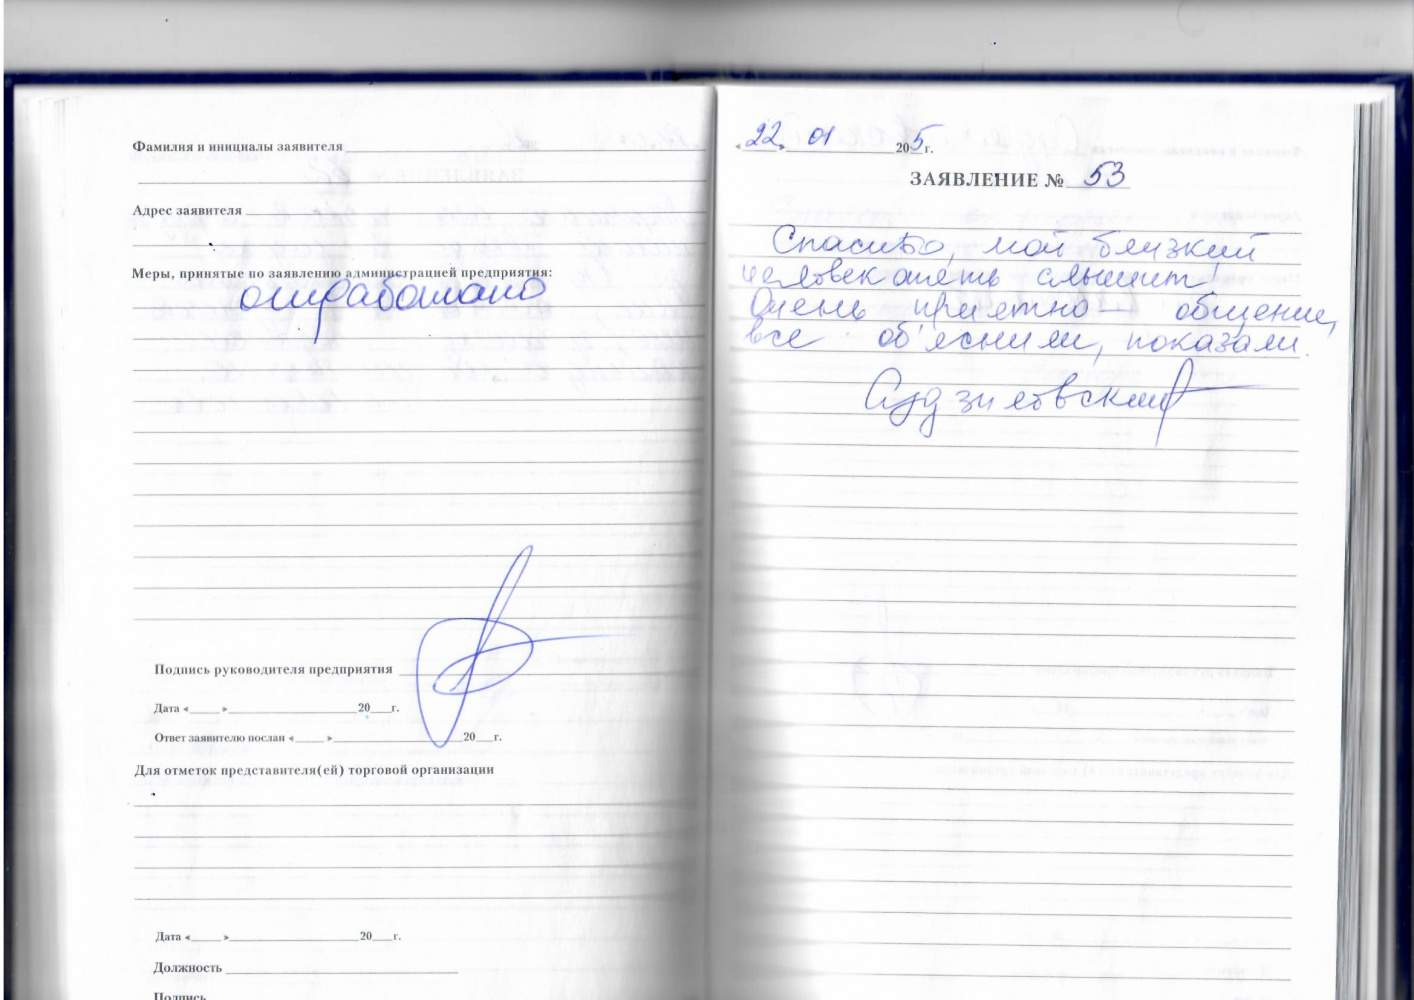 Фамилия и инициалы заявителя
Адрес заявителя
Меры, принятые по заявлению администрацией предприятия:
отработано
Подпись руководителя предприятия
Дата « » 20 г.
Ответ заявителю послан « » 20 г.
Для отметок представителя(ей) торговой организации
Дата « » 20 г.
Должность
Подпись
«22» 01 205 г.
ЗАЯВЛЕНИЕ № 53
Спасибо, мой близкий
человек опять слышит!
Очень приятно – общение,
все об'яснили, показали.
Судзиловский